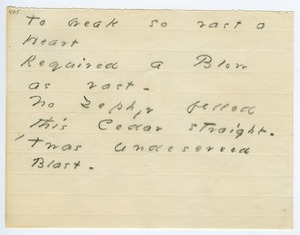 To break so vast a
Heart
Required a Blow
as vast -
No Zephyr felled
this Cedar straight -
'Twas undeserved
Blast -